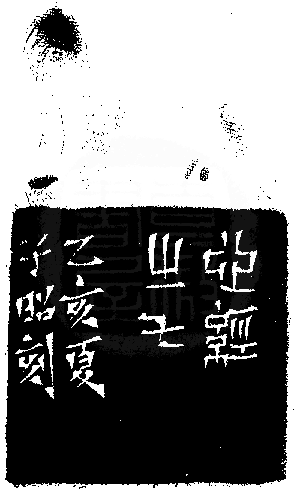 心經
之七
乙亥夏
子昭刻